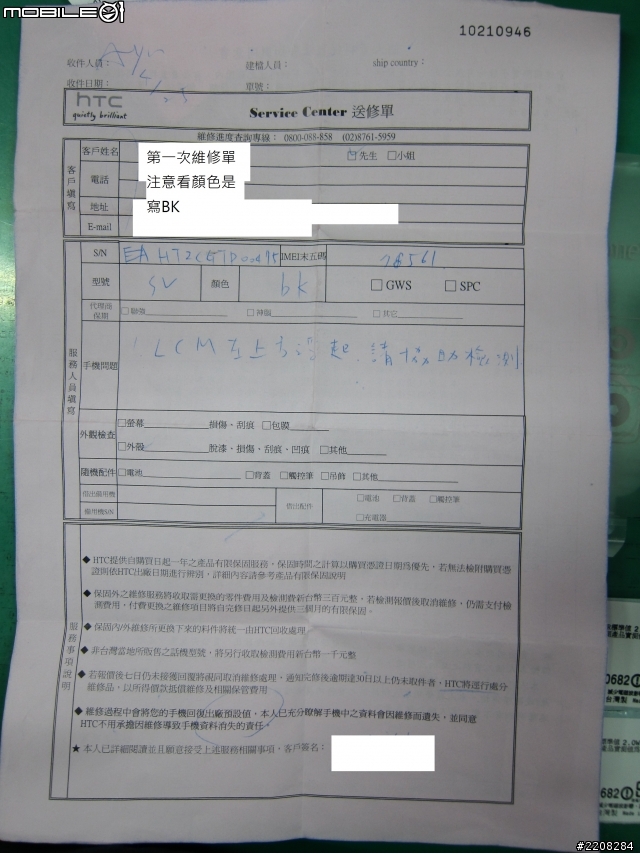 MOBILE01
10210946
收件人員：
建檔人員：
ship country：
收件日期：
單號：
hTC
quietly brilliant
Service Center 送修單
維修進度查詢專線： 0800-088-858 (02)8761-5959
客戶填寫
客戶姓名
□先生 □小姐
電話
地址
E-mail
第一次維修單
注意看顏色是
寫BK
服務人員填寫
S/N
IMEI末五碼 78561
型號 SV 顏色 bk □GWS □SPC
代理商保期 □聯強 □神腦 □其它
手機問題 LCM左上方浮起,請協助檢測
外觀檢查 □螢幕 損傷、刮痕 □包膜
□外殼 脫漆、損傷、刮痕、凹痕 □其他
隨機配件 □電池 □背蓋 □觸控筆 □吊飾 □其他
借出備用機 借出配件 □電池 □背蓋 □觸控筆
備用機S/N □充電器
服務事項說明
◆ HTC提供自購買日起一年之產品有限保固服務，保固時間之計算以購買憑證日期為優先，若無法檢附購買憑
證則依HTC出廠日期進行辨別，詳細內容請參考產品有限保固說明
◆ 保固外之維修服務將收取需更換的零件費用及檢測費新台幣三百元整，若檢測報價後取消維修，仍需支付檢
測費用，付費更換之維修項目將自完修日起另外提供三個月的有限保固。
◆ 保固內/外維修所更換下來的料件將統一由HTC回收處理
◆ 非台灣當地所販售之話機型號，將另行收取檢測費用新台幣一千元整
◆ 若報價後七日仍未接獲回覆將視同取消維修處理，通知完修後逾期達30日以上仍未取件者，HTC將逕行處分
維修品，以所得價款抵償維修及相關保管費用
◆ 維修過程中會將您的手機回復出廠預設值，本人已充分瞭解手機中之資料會因維修而遺失，並同意
HTC不用承擔因維修導致手機資料消失的責任。
★ 本人已詳細閱讀並且願意接受上述服務相關事項、客戶簽名：
#2208284